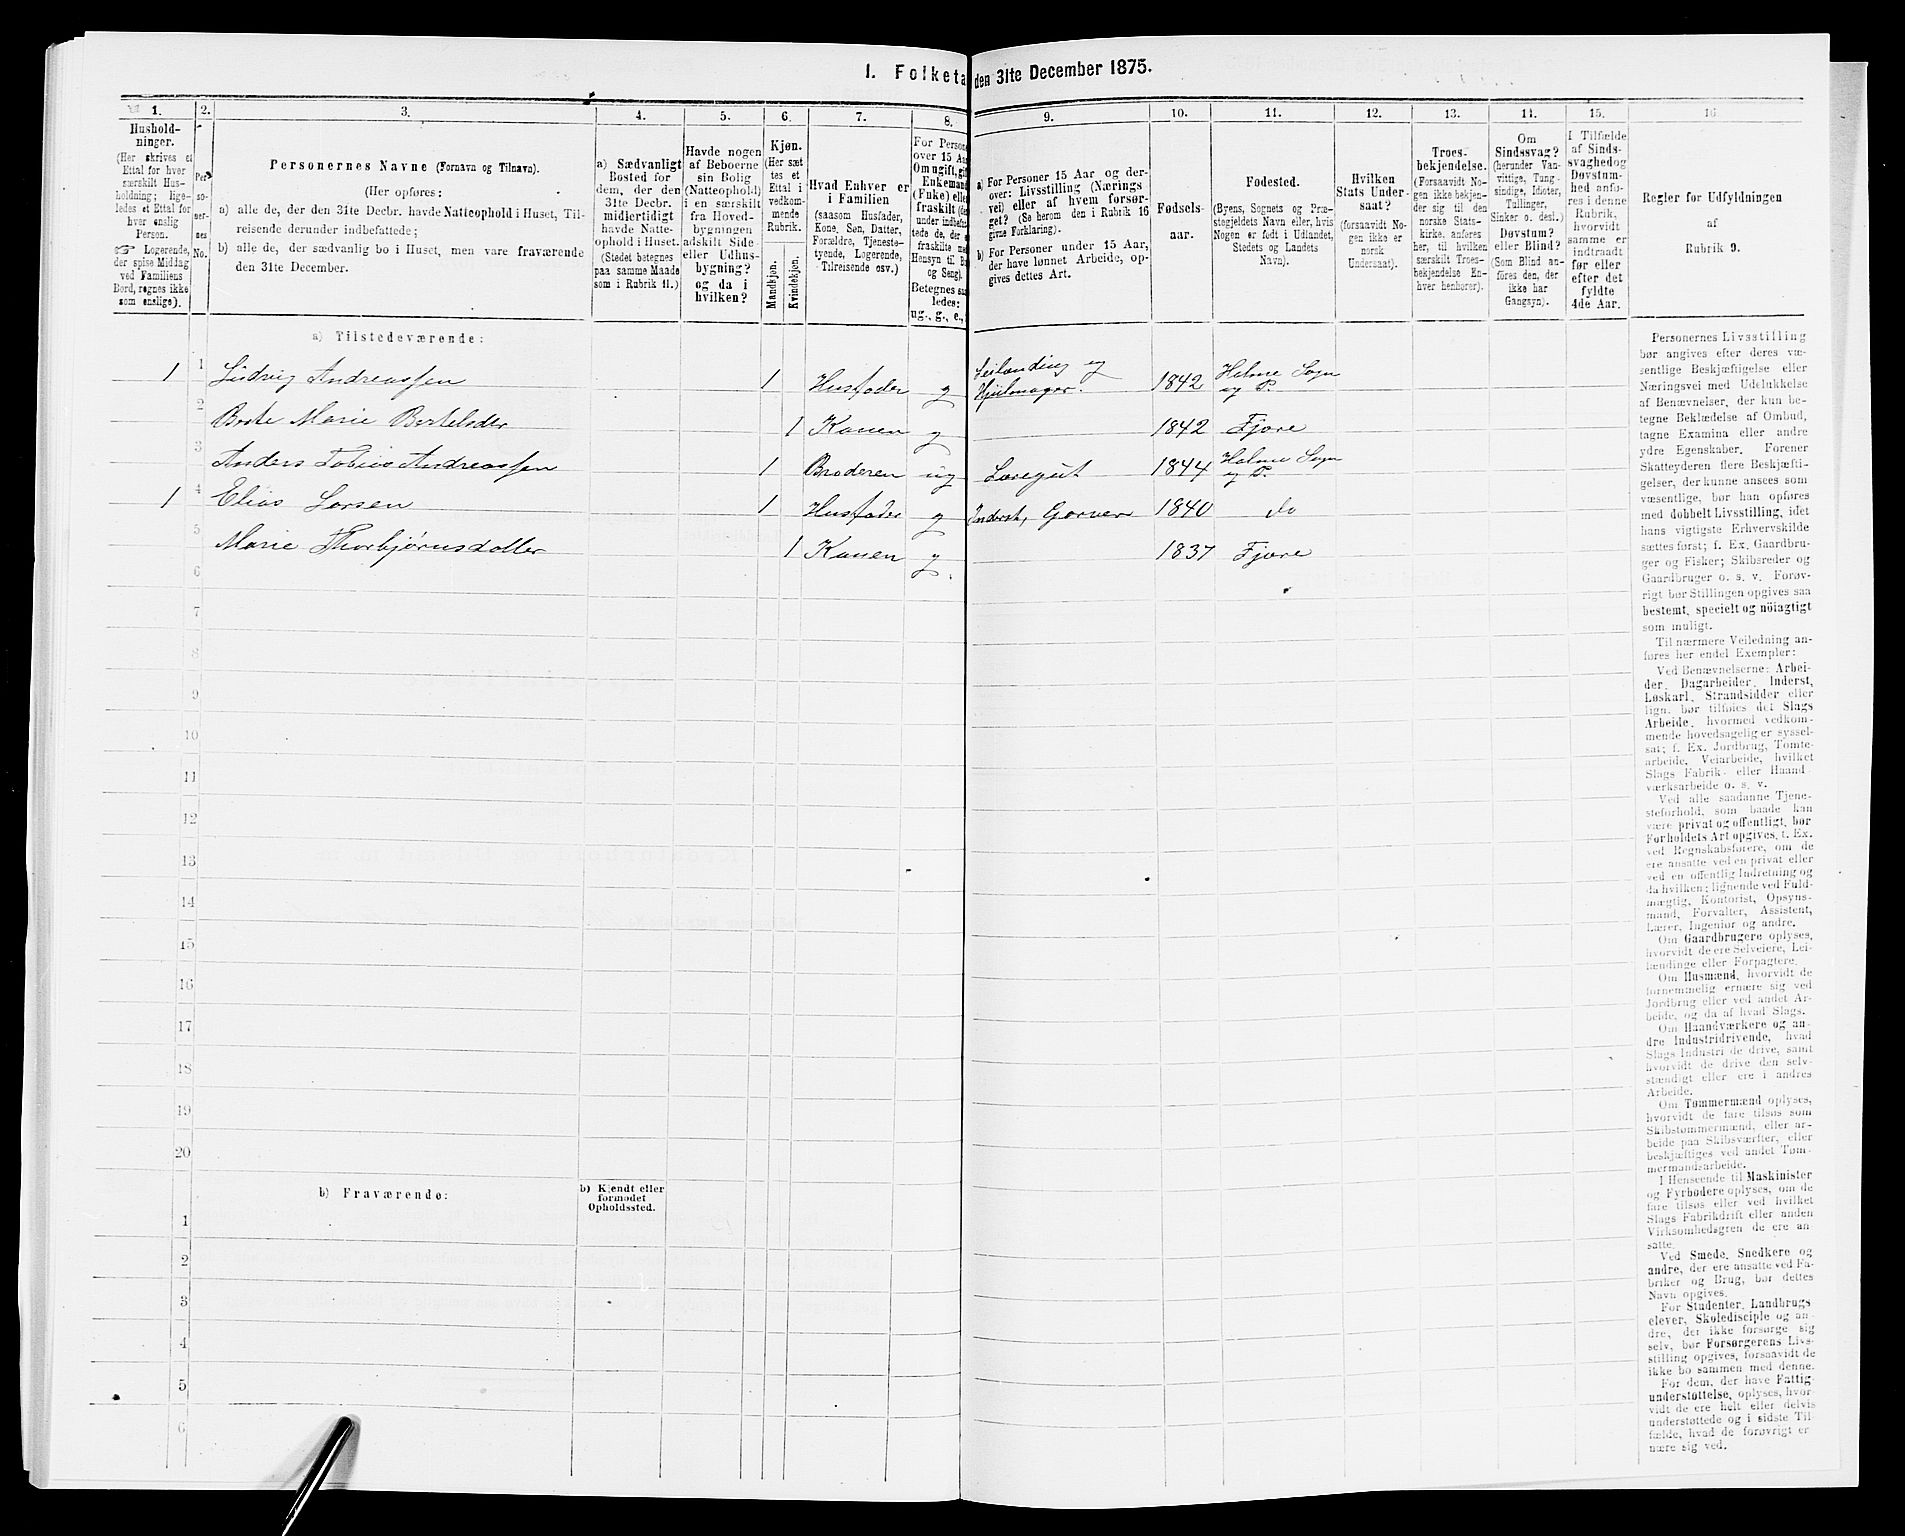 1. Folketa den 31te December 1875.
1. 2. 3. 4. 5. 6. 7. 8. 9. 10. 11. 12. 13. 14. 15. 16
Hushold-
ninger.
(Her skrives et
Ettal for hver
særskilt Hus-
holdning; lige-
ledes et Ettal for
hver enslig
Person.
☞ Logerende,
der spise Middag
ved Familiens
Bord, regnes ikke
som enslige).
Per
so-
ner-
nes
No.
Personernes Navne (Fornavn og Tilnavn).
(Her opføres:
a) alle de, der den 31te Decbr. havde Natteophold i Huset, Til-
reisende derunder indbefattede;
b) alle de, der sædvanlig bo i Huset, men vare fraværende
den 31te December.
a) Sædvanligt
Bosted for
dem, der den
31te Decbr.
midlertidigt
havde Natte-
ophold i Huset.
(Stedet betegnes
paa samme Maade
som i Rubrik 11.)
Havde nogen
af Beboerne
sin Bolig
(Natteophold)
i en særskilt
fra Hoved-
bygningen
adskilt Side-
eller Udhus-
bygning?
og da i
hvilken?
Kjøn.
(Her sæt
tes et
Ettal i
vedkom-
mende
Rubrik.
Mandkjøn.
Kvindekjøn.
Hvad Enhver er
i Familien
(saasom Husfader,
Kone, Søn, Datter,
Forældre, Tjeneste-
tyende, Logerende,
Tilreisende osv.)
For Persone
over 15 Aar
Om ugift, gift
Enkemand
(Enke) eller
fraskilt (der
under indbefat
tede de, der e
fraskilte med
Hensyn til Bo
og Seng).
Betegnes saa
ledes:
ug., g., e.,
a) For Personer 15 Aar og der-
over: Livsstilling (Nærings
vei) eller af hvem forsør-
get? (Se herom den i Rubrik 16
givne Forklaring).
b) For Personer under 15 Aar,
der have lønnet Arbeide, op-
gives dettes Art.
Fødsels-
aar.
Fødested.
(Byens, Sognets og Præ-
stegjeldets Navn eller, hvis
Nogen er født i Udlandet,
Stedets og Landets
Navn).
Hvilken
Stats Under-
saat?
(forsaavidt No-
gen ikke er
norsk
Undersaat).
Troes-
bekjendelse.
(Forsaavidt No-
gen ikke bekjen-
der sig til den
norske Stats-
kirke, anføres
her, til hvilken
særskilt Troes-
bekjendelse En-
hver henhører).
Om
Sindssvag?
(herunder Van-
vittige, Tung-
sindige, Idioter,
Tullinger,
Sinker o. desl.)
Døvstum?
eller Blind?
(Som Blind an-
føres den, der
ikke har
Gangsyn).
I Tilfælde
af Sinds-
svaghedog
Døvstum-
hed anfø-
res i denne
Rubrik,
hvorvidt
samme er
indtraadt
før eller
efter det
fyldte
4de Aar.
Regler for Udfyldningen
af
Rubrik 9.
a) Tilstedeværende:
1 1 Ludvig Andreassen 1 Husfader g Leilænding og Hjulmager. 1842 Holme Sogn og P.
2 Berte Marie Bertelsdtr 1 Konen g 1842 Fjære
3 Anders Tobias Andreassen 1 Broderen ug Læregut 1844 Holme Sogn og P.
1 4 Elias Larsen 1 Husfader g Inderst, Garver 1840 do
5 Marie Thorbjørnsdatter 1 Konen g. 1837 Fjære
6
7
8
9
10
11
12
13
14
15
16
17
18
19
20
b) Fraværende:
b) Kjendt eller
formodet
Opholdssted.
1
2
3
4
5
6
Personernes Livsstilling
bør angives efter deres væ-
sentlige Beskjæftigelse eller
Næringsvei med Udelukkelse
af Benævnelser, der kun be-
tegne Beklædelse af Ombud,
tagne Examina eller andre
ydre Egenskaber. Forener
Skatteyderen flere Beskjæfti-
gelser, der kunne ansees som
væsentlige, bør han opføres
med dobbelt Livsstilling, idet
hans vigtigste Erhvervskilde
sættes først; f. Ex. Gaardbru-
ger og Fisker; Skibsreder og
Gaardbruger o. s. v. Forøv-
rigt bør Stillingen opgives saa
bestemt, specielt og nöiagtigt
som muligt.
Til nærmere Veiledning an-
føres her endel Exempler:
Ved Benævnelserne: Arbei-
der, Dagarbeider, Inderst,
Løskarl, Strandsidder eller
lign. bør tilføies det Slags
Arbeide, hvormed vedkom-
mende hovedsagelig er syssel-
sat; f. Ex. Jordbrug, Tomte-
arbeide, Veiarbeide, hvilket
Slags Fabrik- eller Haand-
værksarbeide o. s. v.
Ved alle saadanne Tjene-
steforhold, som baade kan
være privat og offentligt, bør
Forholdets Art opgives, t. Ex.
ved Regnskabsførere, om de
ere ansatte ved en privat eller
ved en offentlig Indretning og
da hvilken; lignende ved Fuld-
mægtig, Kontorist, Opsyns-
mand, Forvalter, Assistent,
Lærer, Ingeniør og andre.
Om Gaardbrugere oplyses,
hvorvidt de ere Selveiere, Lei-
lændinge eller Forpagtere.
Om Husmænd, hvorvidt de
fornemmelig ernære sig ved
Jordbrug eller ved andet Ar-
beide, og da af hvad Slags.
Om Haandværkere og an-
dre Industridrivende, hvad
Slags Industri de drive, samt
hvorvidt de drive den selv-
stændigt eller ere i andres
Arbeide.
Om Tømmermænd oplyses,
hvorvidt de fare tilsøs som
Skibstømmermænd, eller ar-
beide paa Skibsværfter, eller
beskjæftiges ved andet Tøm-
mermandsarbeide.
I Henseende til Maskinister
og Fyrbødere oplyses, om de
fare tilsøs eller ved hvilket
Slags Fabrikdrift eller anden
Virksomhedsgren de ere an-
satte.
Ved Smede, Snedkere og
andre, der ere ansatte ved Fa-
briker og Brug, bør dettes
Navn opgives.
For Studenter, Landbrugs
elever, Skoledisciple og an-
dre, der ikke forsørge sig
selv, bør Forsørgerens Livs-
stilling opgives, forsaavidt de
ikke bo sammen med denne.
For dem, der have Fattig-
understøttelse, oplyses, hvor-
vidt de ere helt eller delvis
understøttede og i sidste Til-
fælde, hvad de forøvrigt er
nære sig ved.